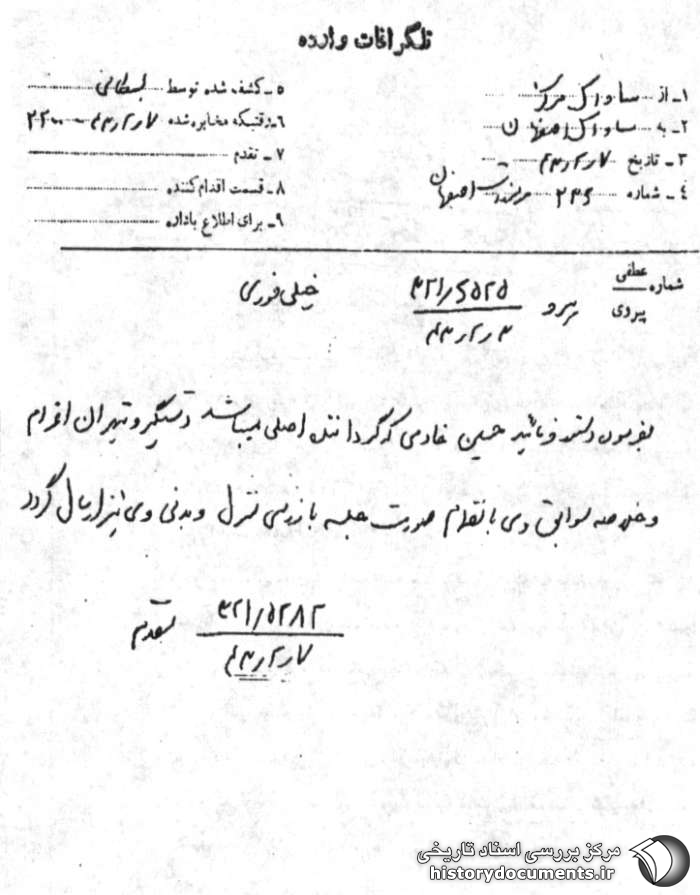 تلگرافات وارده
۱ـ از ساواک مرکز
۲ـ به ساواک اصفهان
۳ـ تاریخ ۷/۲/۴۳
۴ـ شماره ۲۳۶ اصفهان
۵ـ کشف شده توسط بسطامی
۶ـ وقتیکه مخابره شده ۷/۲/۴۳
۷ـ تقدم
۸ـ قسمت اقدام کننده
۹ـ برای اطلاع باداره
شماره عطفی
پیروی
پیرو ۳۲۱/۶۵۲۵
۳/۲/۴۳
خیلی فوری
بفرمودن حسین خادمی که گرداننده اصلی میباشد دستگیر و تهران اعزام
و خلاصه سوابق وی بانضمام صورت جلسه بازرسی منزل و بدنی وی نیز ارسال گردد
۳۲۱/۵۲۸۲
۷/۲/۴۳
مقدم
مرکز بررسی اسناد تاریخی
historydocuments.ir